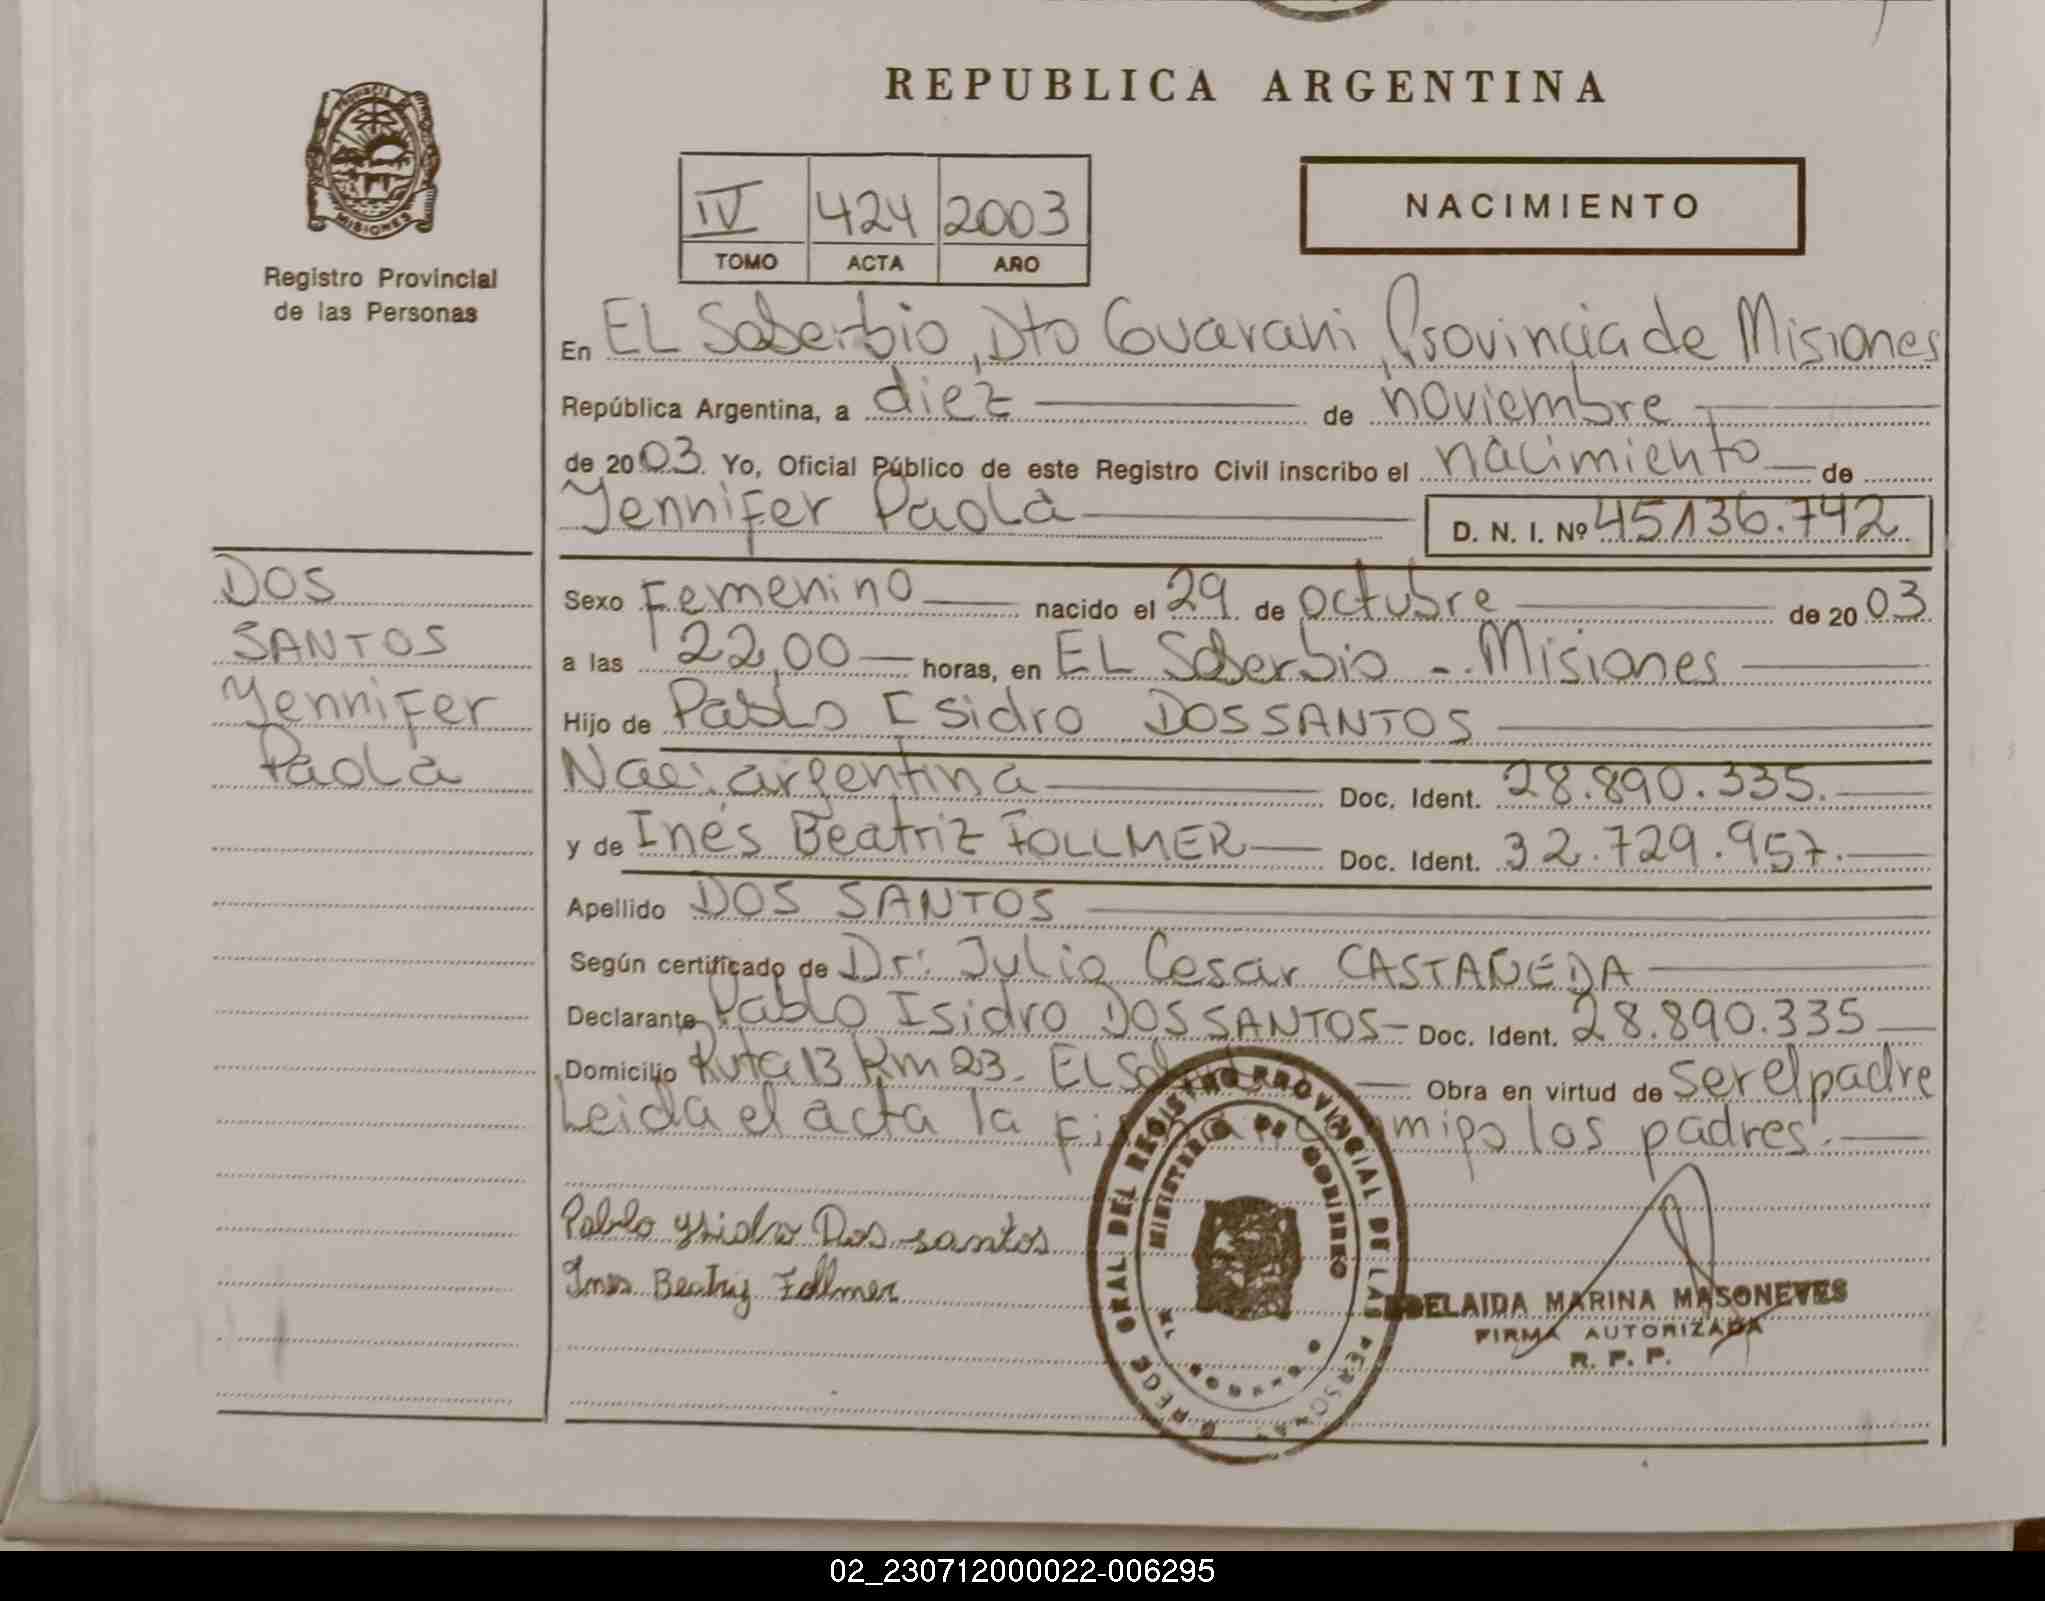 REPUBLICA ARGENTINA
PROVINCIA DE
MISIONES
Registro Provincial
de las Personas
IV 424 2003
TOMO ACTA AÑO
NACIMIENTO
En EL Soberbio, Dto Guarani, Provincia de Misiones
República Argentina, a diez de noviembre
de 2003. Yo, Oficial Público de este Registro Civil inscribo el nacimiento de
Yennifer Paola D. N. I. Nº 45136.742
DOS
SANTOS
Yennifer
Paola
Sexo Femenino nacido el 29 de octubre de 2003
a las 22,00 horas, en EL Soberbio - Misiones
Hijo de Pablo Isidro DOS SANTOS
Nac: argentina Doc. Ident. 28.890.335.
y de Inés Beatriz FOLLMER Doc. Ident. 32.729.957.
Apellido DOS SANTOS
Según certificado de Dr: Julio Cesar CASTAÑEDA
Declarante Pablo Isidro DOS SANTOS- Doc. Ident. 28.890.335
Domicilio Ruta 13 Km 23- EL Obra en virtud de ser el padre
Leida el acta la los padres.
Pablo Ysidro Dos santos
Ines Beatriz Follmer
GRAL DEL REGISTRO PROVINCIAL DE LAS PERSONAS
MINISTERIO DE GOBIERNO
ADELAIDA MARINA MASONEVES
FIRMA AUTORIZADA
R. P. P.
02_230712000022-006295